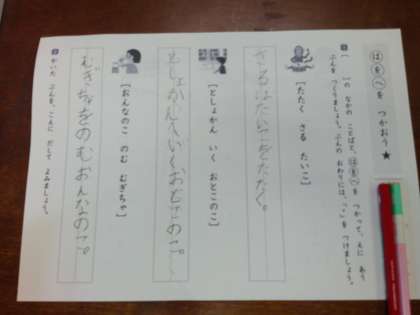 はをへを つかおう★
1 [ ]の なかの ことばと、はをへを つかって、えに あう
ぶんを つくりましょう。ぶんの おわりには、「。」を つけましょう。
[たたく さる たいこ]
さるはたいこをたたく。
[としょかん いく おとこのこ]
としょかんへいくおとこのこ。
[おんなのこ のむ むぎちゃ]
むぎちゃをのむおんなのこ。
2 かいた ぶんを、こえに だして よみましょう。